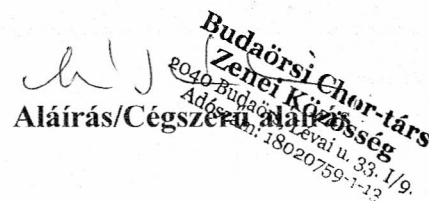 Budaörsi Chor-társ
Zenei Közösség
2040 Budaörs, Lévai u. 33. 1/9.
Adószám: 18020759-1-13
Aláírás/Cégszerű aláírás